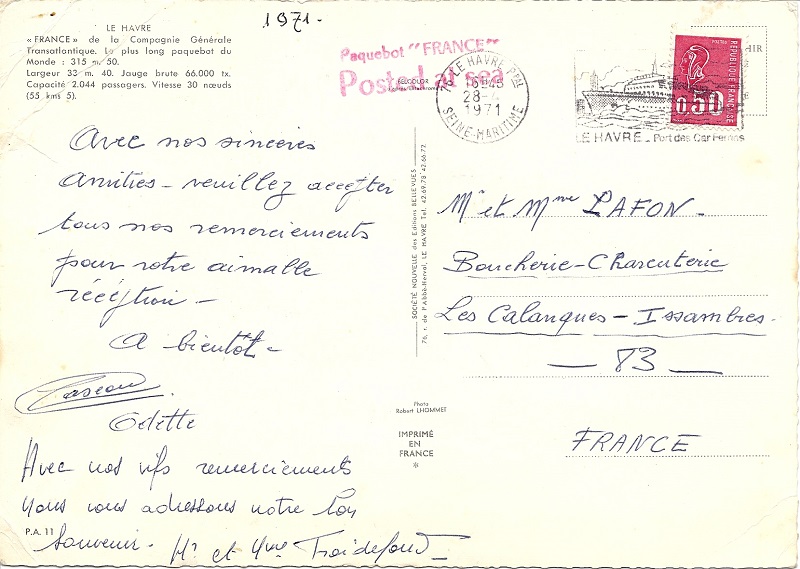 1971.
LE HAVRE
« FRANCE » de la Compagnie Générale
Transatlantique. Le plus long paquebot du
Monde : 315 m. 50.
Largeur 33 m. 40. Jauge brute 66.000 tx.
Capacité 2.044 passagers. Vitesse 30 nœuds
(55 kms 5).
Paquebot "FRANCE"
Posted at sea
76 LE HAVRE PPAL
16H45
28-
1971
SEINE-MARITIME
LE HAVRE - Port des Car Ferries
0,50
REPUBLIQUE FRANÇAISE
Avec nos sincères
Amitiés - veuillez accepter
tous nos remerciements
pour votre aimable
réception -
A bientôt -
Odette
Avec nos vifs remerciements
Nous vous adressons notre bon
Souvenir. Mr et Mme
P.A. 11
SOCIÉTÉ NOUVELLE des Editions BELLEVUES
76, r. de l'Abbé-Herval, LE HAVRE Tél. 42.69.78 42.66.72
Photo
Robert LHOMMET
IMPRIMÉ
EN
FRANCE
*
Mr et Mme LAFON -
Boucherie - Charcuterie
Les Calanques - Issambres.
- 83 -
FRANCE